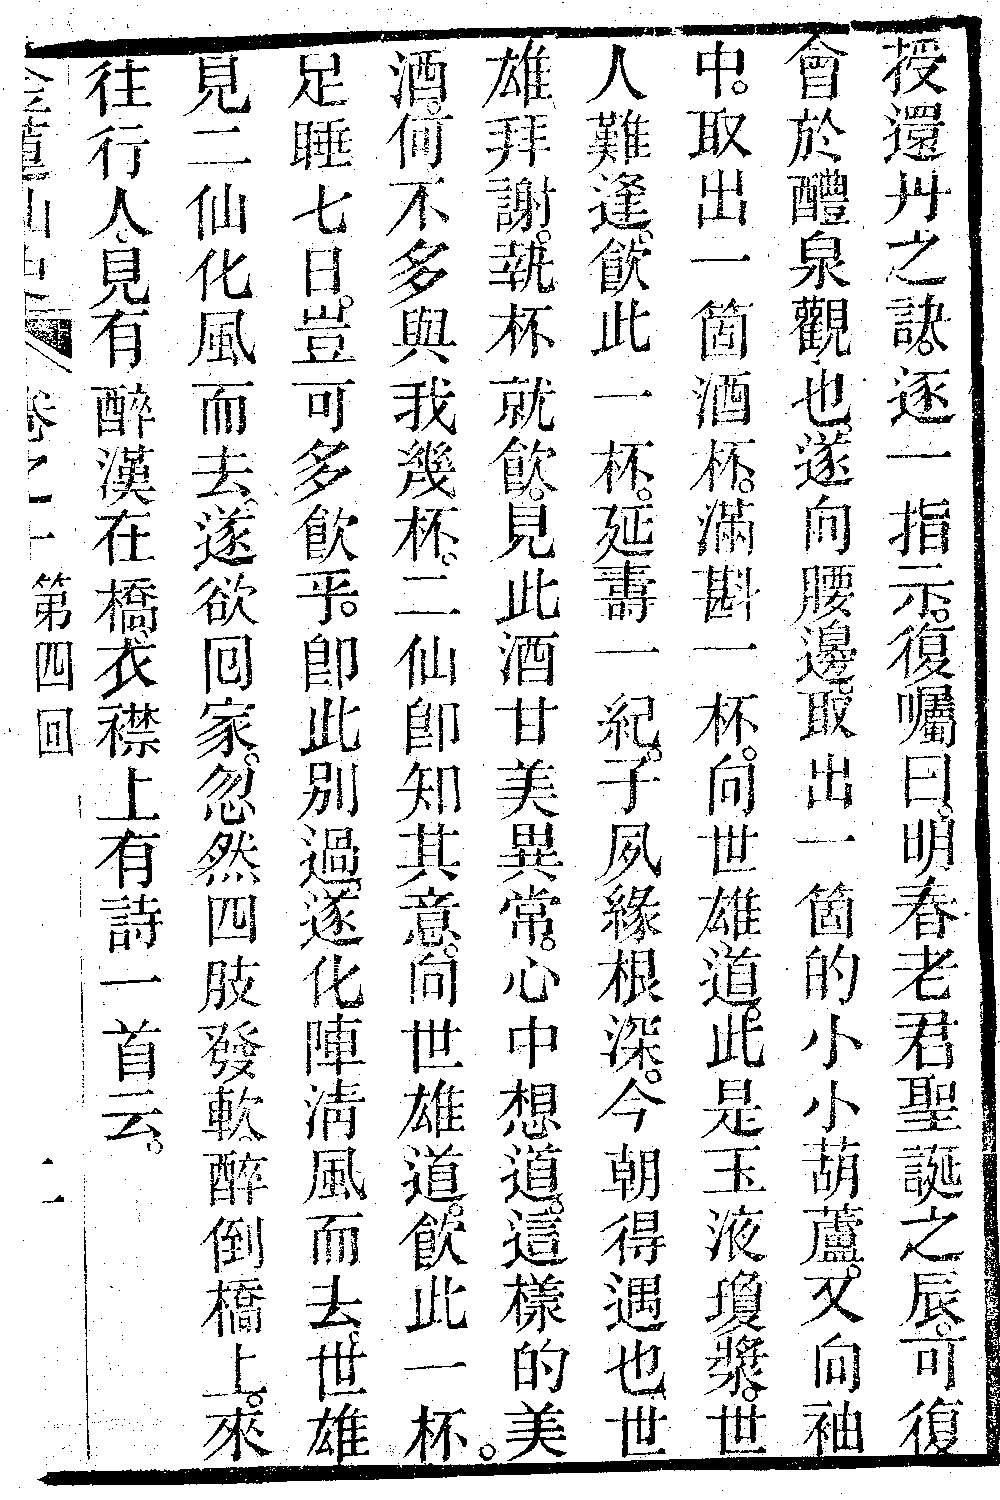 授還丹之訣。逐一指示。復囑曰。明春老君聖誕之辰。可復
會於醴泉觀也。遂向腰邊取出一箇的小小葫蘆。又向袖
中。取出一箇酒杯。滿斟一杯。向世雄道。此是玉液瓊漿。世
人難逢。飲此一杯。延壽一紀。子夙緣根深。今朝得遇也。世
雄拜謝。執杯就飲。見此酒甘美異常。心中想道。這樣的美
酒。何不多與我幾杯。二仙卽知其意。向世雄道。飲此一杯。
足睡七日。豈可多飲乎。卽此別過。遂化陣清風而去。世雄
見二仙化風而去。遂欲回家。忽然四肢發軟。醉倒橋上。來
往行人。見有醉漢在橋。衣襟上有詩一首云。
第四回